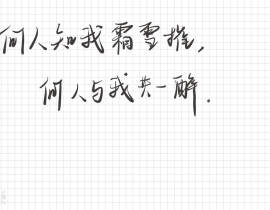 何人知我霜雪摧，
何人与我共一醉.